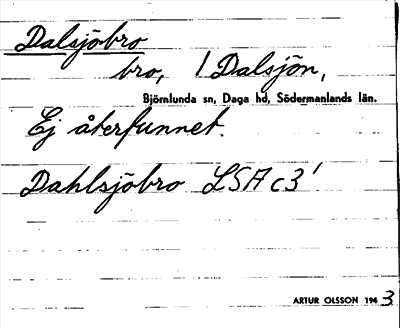 Dalsjöbro
bro, / Dalsjön,
Björnlunda sn, Daga hd, Södermanlands län.
Ej återfunnet.
Dahlsjöbro LSA c3'
ARTUR OLSSON 1943